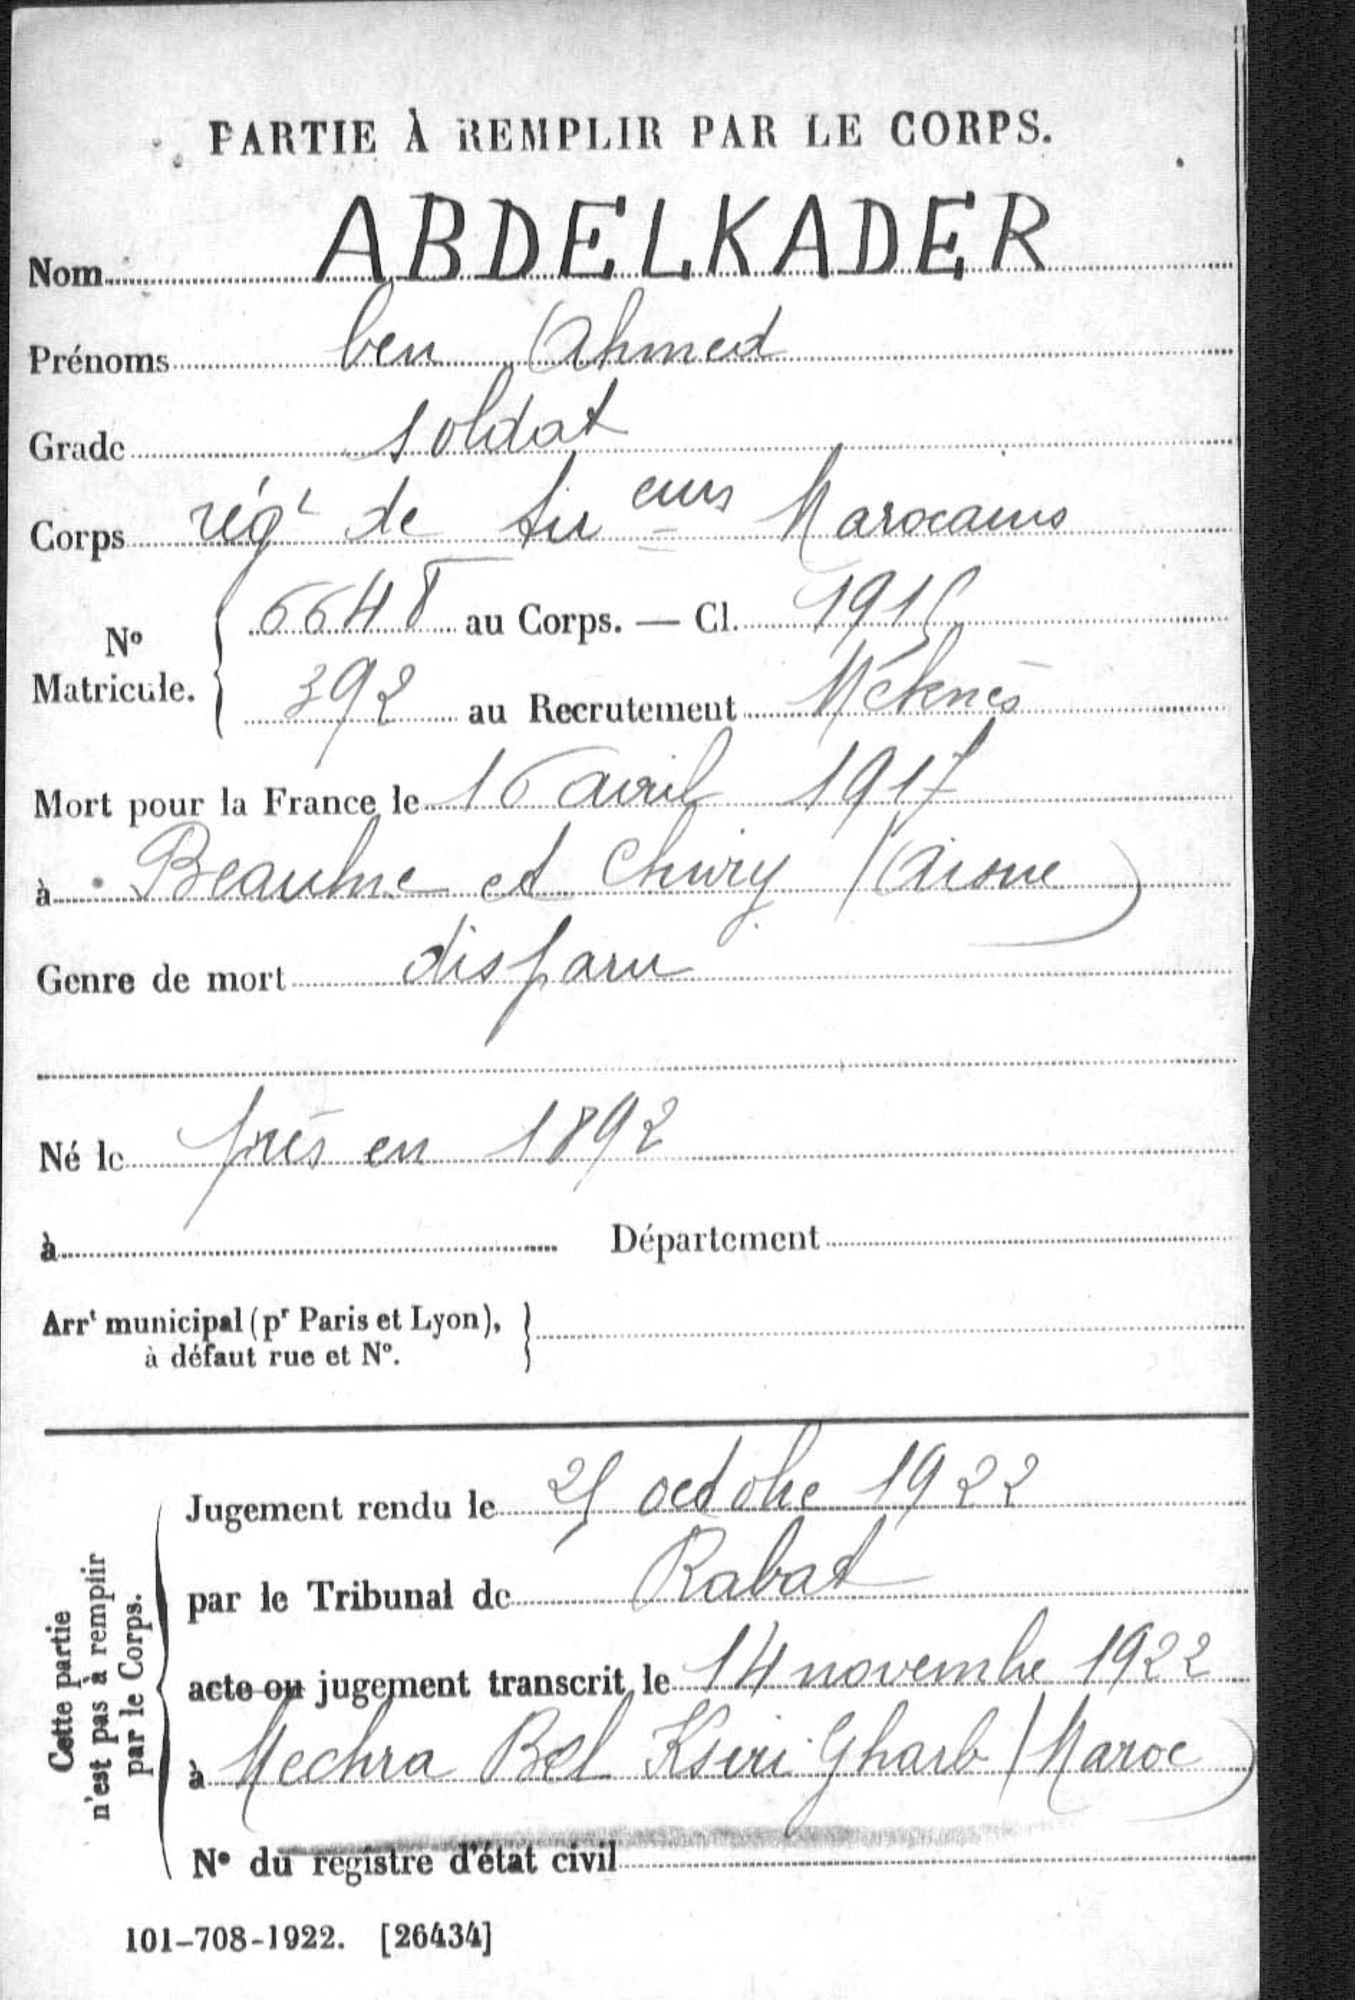 PARTIE À REMPLIR PAR LE CORPS.
Nom ABDELKADER
Prénoms ben Ahmed
Grade soldat
Corps régt de tireurs Marocains
No Matricule. 6648 au Corps. — Cl. 1915
392 au Recrutement Méknès
Mort pour la France le 16 avril 1917
à Beaulne et Chivry (Aisne)
Genre de mort disparu
Né le prés en 1892
à Département
Arrt municipal (pr Paris et Lyon),
à défaut rue et No.
Cette partie
n'est pas à remplir
par le Corps.
Jugement rendu le 25 octobre 1922
par le Tribunal de Rabat
acte ou jugement transcrit le 14 novembre 1922
à Mechra Bel Ksiri Gharb (Maroc)
No du registre d'état civil
101-708-1922. [26434]